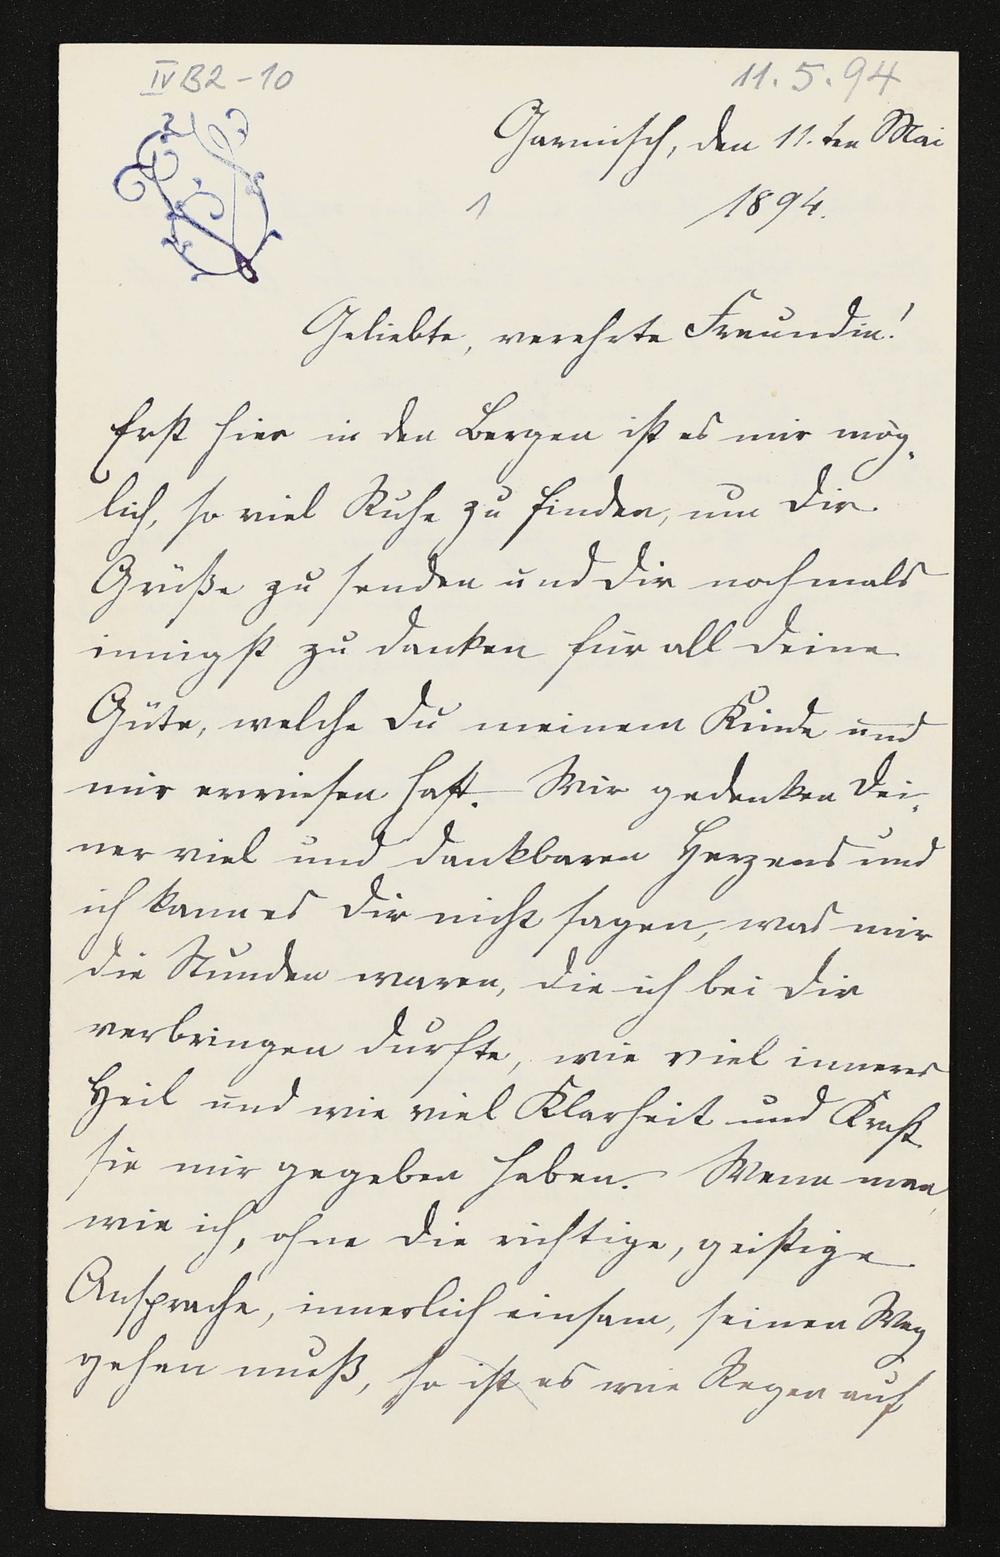 IV B2-10
11.5.94
Garmisch, den 11. ten Mai
1
1894.
Geliebte, verehrte Freundin!
Erst hier in den Bergen ist es mir mög-
lich, so viel Ruhe zu finden, um Dir
Grüße zu senden und Dir nochmals
innigst zu danken für all Deine
Güte, welche Du meinem Kinde und
mir erwiesen hast. Wir gedenken Dei-
ner viel und dankbaren Herzens und
ich kann es Dir nicht sagen, was mir
die Stunden waren, die ich bei Dir
verbringen durfte, wie viel inneres
Heil und wie viel Klarheit und Kraft
sie mir gegeben haben. Wenn man,
wie ich, ohne die richtige, geistige
Ansprache, innerlich einsam, seinen Weg
gehen muß, so ist es wie Regen auf